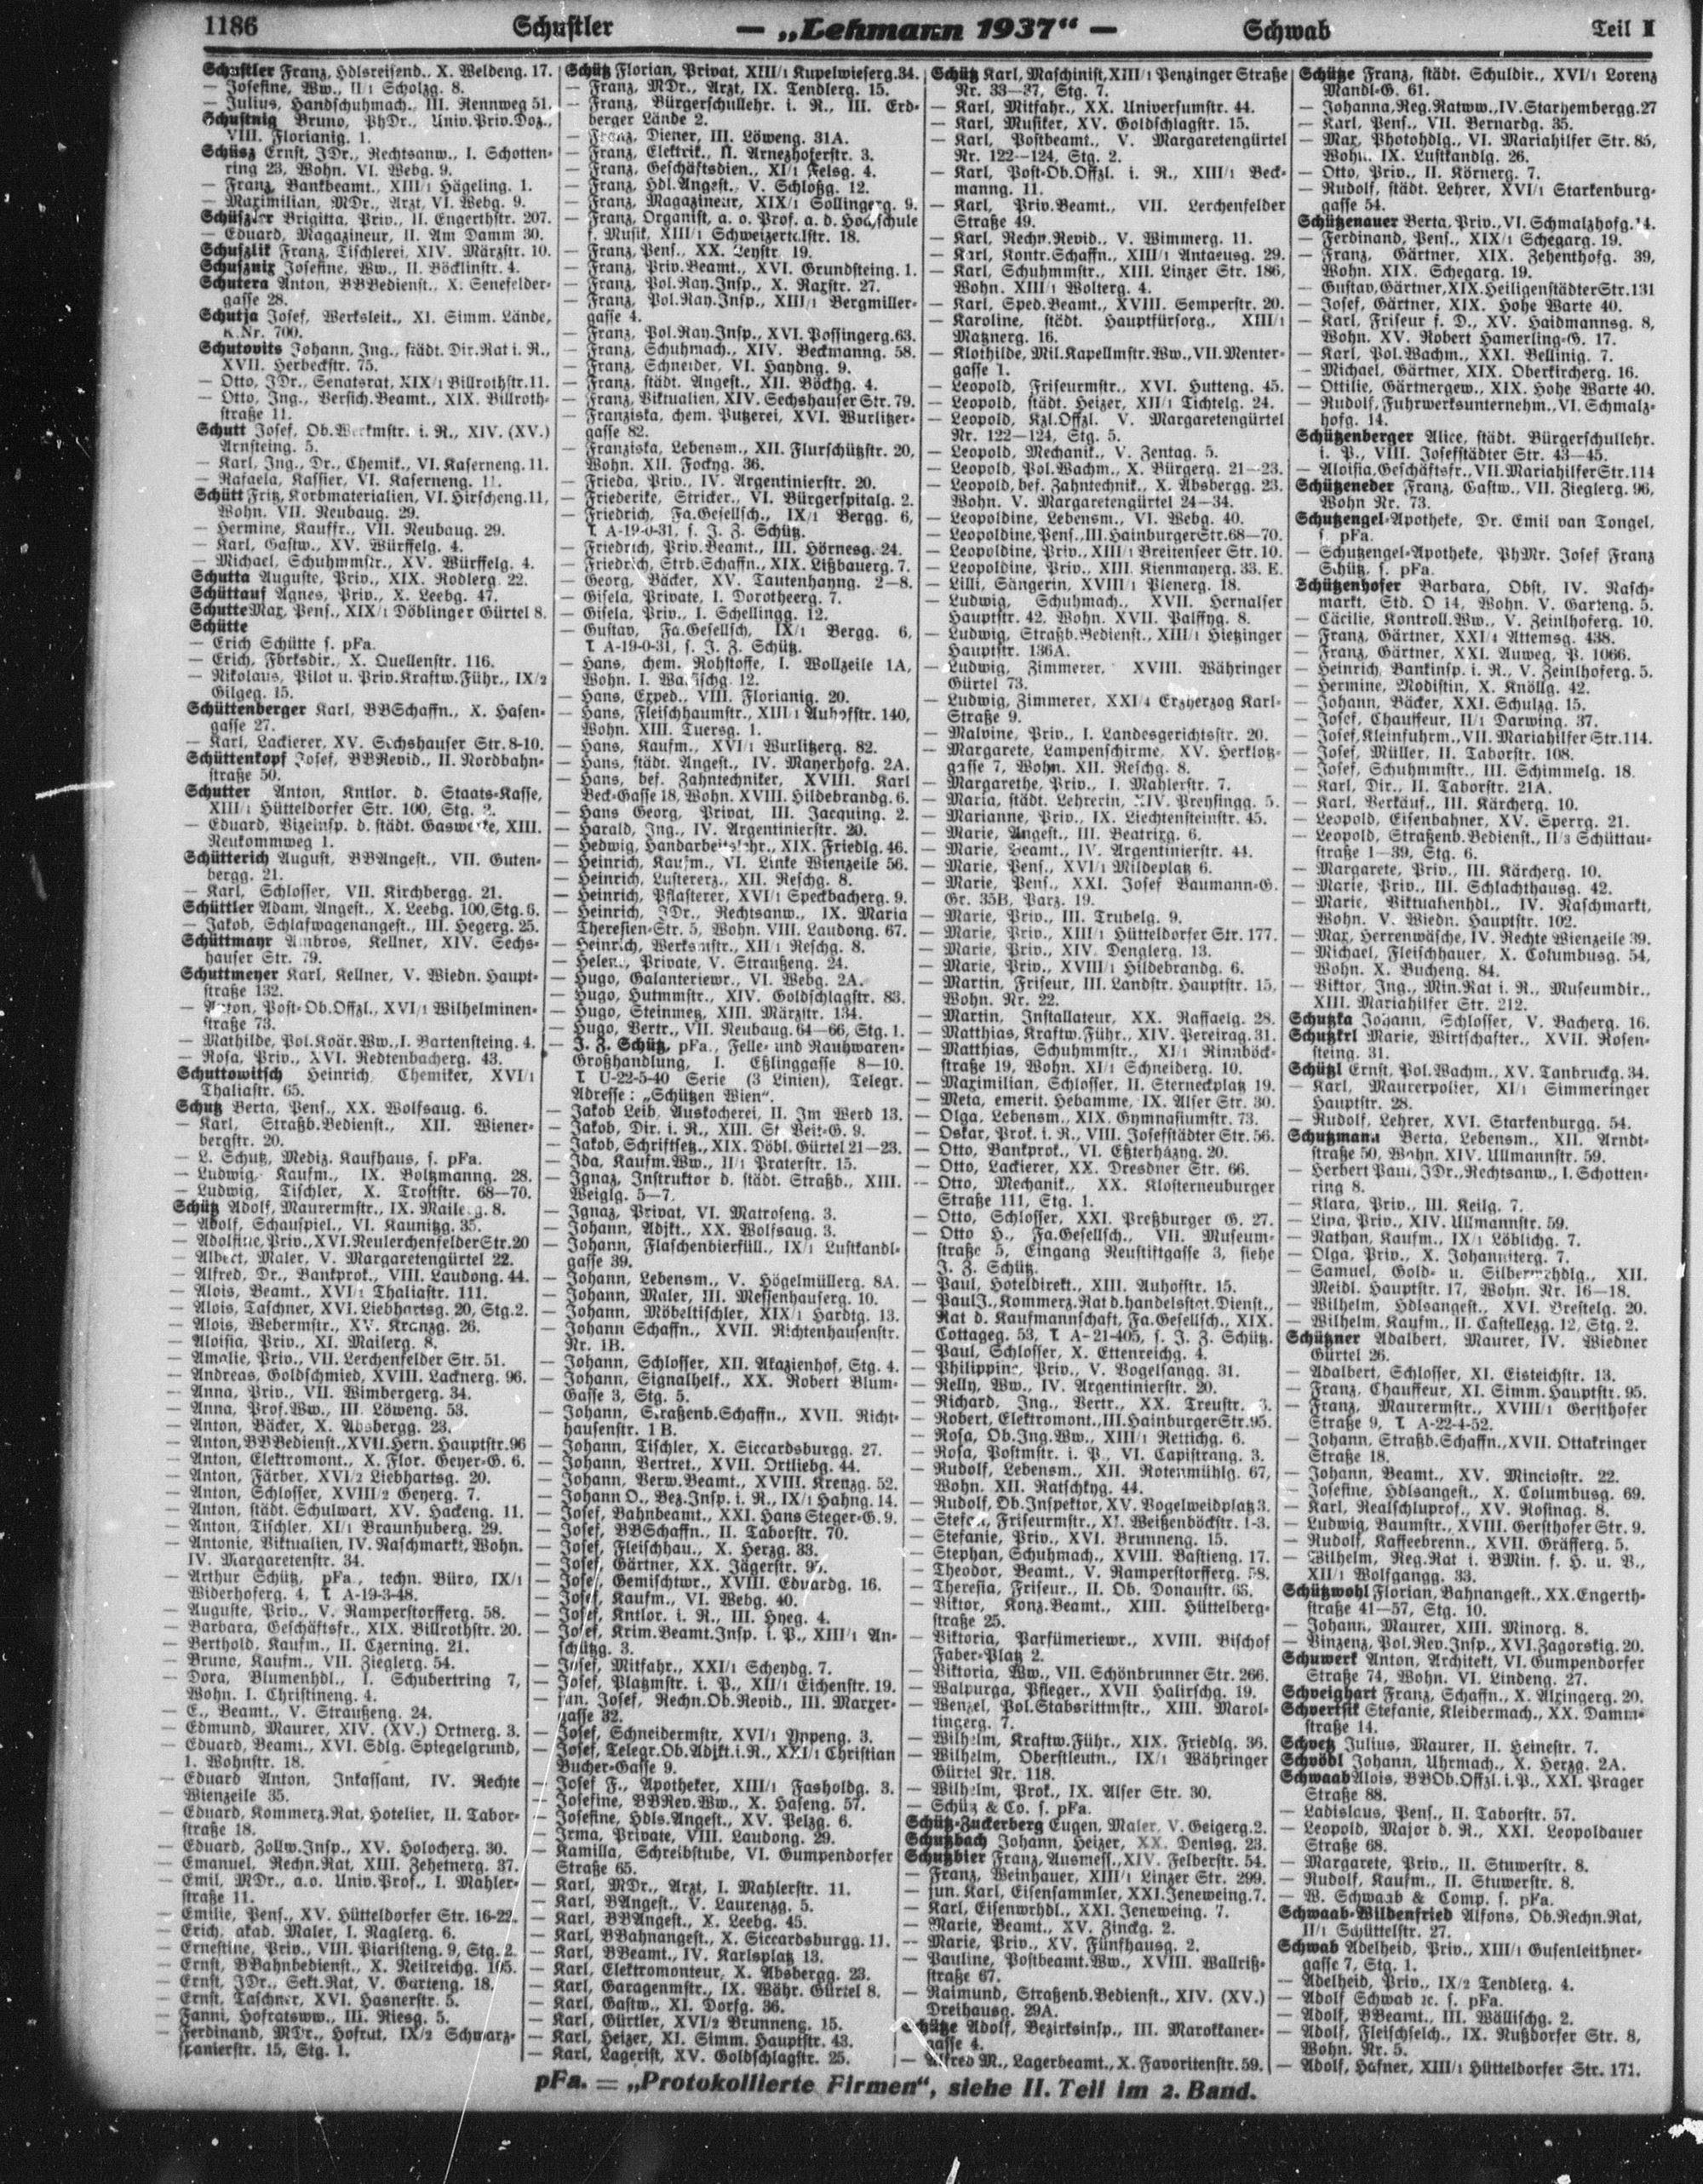 1186 Schustler — „Lehmann 1937“ — Schwab Teil I
Schustler Franz, Hdlsreisend., X. Weldeng. 17.
— Josefine, Ww., II/1 Scholzg. 8.
— Julius, Handschuhmach., III. Rennweg 51.
Schustnig Bruno, PhDr., Univ.Priv.Doz.,
VIII. Florianig. 1.
Schüsz Ernst, JDr., Rechtsanw., I. Schotten-
ring 23, Wohn. VI. Webg. 9.
— Franz, Bankbeamt., XIII/1 Hägeling. 1.
— Maximilian, MDr., Arzt, VI. Webg. 9.
Schüszler Brigitta, Priv., II. Engerthstr. 207.
— Eduard, Magazineur, II. Am Damm 30.
Schuszlik Franz, Tischlerei, XIV. Märzstr. 10.
Schusznix Josefine, Ww., II. Böcklinstr. 4.
Schutera Anton, BBBedienst., X. Senefelder-
gasse 28.
Schutja Josef, Werksleit., XI. Simm. Lände,
K.Nr. 700.
Schutovits Johann, Ing., städt. Dir.Rat i. R.,
XVII. Herbeckstr. 75.
— Otto, JDr., Senatsrat, XIX/1 Billrothstr. 11.
— Otto, Ing., Versich.Beamt., XIX. Billroth-
straße 11.
Schutt Josef, Ob.Werkmstr. i. R., XIV. (XV.)
Arnsteing. 5.
— Karl, Ing., Dr., Chemik., VI. Kaserneng. 11.
— Rafaela, Kassier, VI. Kaserneng. 11.
Schütt Fritz, Korbmaterialien, VI. Hirscheng. 11,
Wohn. VII. Neubaug. 29.
— Hermine, Kauffr., VII. Neubaug. 29.
— Karl, Gastw., XV. Würffelg. 4.
— Michael, Schuhmmstr., XV. Würffelg. 4.
Schutta Auguste, Priv., XIX. Rodlerg. 22.
Schüttauf Agnes, Priv., X. Leebg. 47.
Schutte Max, Pens., XIX/1 Döblinger Gürtel 8.
Schütte
— Erich Schütte s. pFa.
— Erich, Fbrksdir., X. Quellenstr. 116.
— Nikolaus, Pilot u. Priv.Kraftw.Führ., IX/2
Gilgeg. 15.
Schüttenberger Karl, BBSchaffn., X. Hasen-
gasse 27.
— Karl, Lackierer, XV. Sechshauser Str. 8-10.
Schüttenkopf Josef, BBRevid., II. Nordbahn-
straße 50.
Schutter Anton, Kntlor. d. Staats-Kasse,
XIII/1 Hütteldorfer Str. 100, Stg. 2.
— Eduard, Vizeinsp. d. städt. Gaswerke, XIII.
Neukommweg 1.
Schütterich August, BBAngest., VII. Guten-
bergg. 21.
— Karl, Schlosser, VII. Kirchbergg. 21.
Schüttler Adam, Angest., X. Leebg. 100, Stg. 6.
— Jakob, Schlafwagenangest., III. Hegerg. 25.
Schüttmayr Ambros, Kellner, XIV. Sechs-
hauser Str. 79.
Schuttmeyer Karl, Kellner, V. Wiedn. Haupt-
straße 132.
— Anton, Post-Ob.Offzl., XVI/1 Wilhelminen-
straße 73.
— Mathilde, Pol.Koär.Ww., I. Bartensteing. 4.
— Rosa, Priv., XVI. Redtenbacherg. 43.
Schuttowitsch Heinrich, Chemiker, XVI/1
Thaliastr. 65.
Schutz Berta, Pens., XX. Wolfsaug. 6.
— Karl, Straßb.Bedienst., XII. Wiener-
bergstr. 20.
— L. Schutz, Mediz. Kaufhaus, s. pFa.
— Ludwig, Kaufm., IX. Boltzmanng. 28.
— Ludwig, Tischler, X. Troststr. 68—70.
Schütz Adolf, Maurermstr., IX. Mailerg. 8.
— Adolf, Schauspiel., VI. Kaunitzg. 35.
— Adolfine, Priv., XVI. Neulerchenfelder Str. 20
— Albert, Maler, V. Margaretengürtel 22.
— Alfred, Dr., Bankprok., VIII. Laudong. 44.
— Alois, Beamt., XVI/1 Thaliastr. 111.
— Alois, Taschner, XVI. Liebhartsg. 20, Stg. 2.
— Alois, Webermstr., XV. Kranzg. 26.
— Aloisia, Priv., XI. Mailerg. 8.
— Amalie, Priv., VII. Lerchenfelder Str. 51.
— Andreas, Goldschmied, XVIII. Lacknerg. 96.
— Anna, Priv., VII. Wimbergerg. 34.
— Anna, Prof.Ww., III. Löweng. 53.
— Anton, Bäcker, X. Absbergg. 23.
— Anton, BBBedienst., XVII. Hern. Hauptstr. 96
— Anton, Elektromont., X. Flor. Geyer-G. 6.
— Anton, Färber, XVI/2 Liebhartsg. 20.
— Anton, Schlosser, XVIII/2 Geyerg. 7.
— Anton, städt. Schulwart, XV. Hackeng. 11.
— Anton, Tischler, XI/1 Braunhuberg. 29.
— Antonie, Viktualien, IV. Naschmarkt, Wohn.
IV. Margaretenstr. 34.
— Arthur Schütz, pFa., techn. Büro, IX/1
Widerhoferg. 4, T. A-19-3-48.
— Auguste, Priv., V. Ramperstorfferg. 58.
— Barbara, Geschäftsfr., XIX. Billrothstr. 20.
— Berthold, Kaufm., II. Czerning. 21.
— Bruno, Kaufm., VII. Zieglerg. 54.
— Dora, Blumenhdl., I. Schubertring 7,
Wohn. I. Christineng. 4.
— E., Beamt., V. Straußeng. 24.
— Edmund, Maurer, XIV. (XV.) Ortnerg. 3.
— Eduard, Beamt., XVI. Sdlg. Spiegelgrund,
1. Wohnstr. 18.
— Eduard Anton, Inkassant, IV. Rechte
Wienzeile 35.
— Eduard, Kommerz.Rat, Hotelier, II. Tabor-
straße 18.
— Eduard, Zollw.Insp., XV. Holocherg. 30.
— Emanuel, Rechn.Rat, XIII. Zehetnerg. 37.
— Emil, MDr., a.o. Univ.Prof., I. Mahler-
straße 11.
— Emilie, Pens., XV. Hütteldorfer Str. 16-22.
— Erich, akad. Maler, I. Naglerg. 6.
— Ernestine, Priv., VIII. Piaristeng. 9, Stg. 2.
— Ernst, BBahnbedienst., X. Neilreichg. 105.
— Ernst, JDr., Sekt.Rat, V. Garteng. 18.
— Ernst, Taschner, XVI. Hasnerstr. 5.
— Fanni, Hofratsww., III. Riesg. 5.
— Ferdinand, MDr., Hofrat, IX/2 Schwarz-
spanierstr. 15, Stg. 1.
Schütz Florian, Privat, XIII/1 Kupelwieserg. 34.
— Franz, MDr., Arzt, IX. Tendlerg. 15.
— Franz, Bürgerschullehr. i. R., III. Erd-
berger Lände 2.
— Franz, Diener, III. Löweng. 31A.
— Franz, Elektrik., II. Arnezhoferstr. 3.
— Franz, Geschäftsdien., XI/1 Felsg. 4.
— Franz, Hdl.Angest., V. Schloßg. 12.
— Franz, Magazineur, XIX/1 Sollingerg. 9.
— Franz, Organist, a. o. Prof. a. d. Hochschule
f. Musik, XIII/1 Schweizertalstr. 18.
— Franz, Pens., XX. Leystr. 19.
— Franz, Priv.Beamt., XVI. Grundsteing. 1.
— Franz, Pol.Ray.Insp., X. Raxstr. 27.
— Franz, Pol.Ray.Insp., XIII/1 Bergmiller-
gasse 4.
— Franz, Pol.Ray.Insp., XVI. Possingerg. 63.
— Franz, Schuhmach., XIV. Beckmanng. 58.
— Franz, Schneider, VI. Haydng. 9.
— Franz, städt. Angest., XII. Böckhg. 4.
— Franz, Viktualien, XIV. Sechshauser Str. 79.
— Franziska, chem. Putzerei, XVI. Wurlitzer-
gasse 82.
— Franziska, Lebensm., XII. Flurschützstr. 20,
Wohn. XII. Fockyg. 36.
— Frieda, Priv., IV. Argentinierstr. 20.
— Friederike, Stricker., VI. Bürgerspitalg. 2.
— Friedrich, Fa.Gesellsch., IX/1 Bergg. 6,
T. A-19-0-31, s. J. Z. Schütz.
— Friedrich, Priv.Beamt., III. Hörnesg. 24.
— Friedrich, Strb.Schaffn., XIX. Lißbauerg. 7.
— Georg, Bäcker, XV. Tautenhayng. 2—8.
— Gisela, Private, I. Dorotheerg. 7.
— Gisela, Priv., I. Schellingg. 12.
— Gustav, Fa.Gesellsch., IX/1 Bergg. 6,
T. A-19-0-31, s. J. Z. Schütz.
— Hans, chem. Rohstoffe, I. Wollzeile 1A,
Wohn. I. Wallfischg. 12.
— Hans, Exped., VIII. Florianig. 20.
— Hans, Fleischhaumstr., XIII/1 Auhofstr. 140,
Wohn. XIII. Tuersg. 1.
— Hans, Kaufm., XVI/1 Wurlitzerg. 82.
— Hans, städt. Angest., IV. Mayerhofg. 2A.
— Hans, bef. Zahntechniker, XVIII. Karl
Beck-Gasse 18, Wohn. XVIII. Hildebrandg. 6.
— Hans Georg, Privat, III. Jacquing. 2.
— Harald, Ing., IV. Argentinierstr. 20.
— Hedwig, Handarbeitslehr., XIX. Friedlg. 46.
— Heinrich, Kaufm., VI. Linke Wienzeile 56.
— Heinrich, Lustererz., XII. Reschg. 8.
— Heinrich, Pflasterer, XVI/1 Speckbacherg. 9.
— Heinrich, JDr., Rechtsanw., IX. Maria
Theresien-Str. 5, Wohn. VIII. Laudong. 67.
— Heinrich, Werksmstr., XII/1 Reschg. 8.
— Helene, Private, V. Straußeng. 24.
— Hugo, Galanteriewr., VI. Webg. 2A.
— Hugo, Hutmmstr., XIV. Goldschlagstr. 83.
— Hugo, Steinmetz, XIII. Märzstr. 134.
— Hugo, Vertr., VII. Neubaug. 64—66, Stg. 1.
— J. Z. Schütz, pFa., Felle- und Rauhwaren-
Großhandlung, I. Eßlinggasse 8—10.
T. U-22-5-40 Serie (3 Linien), Telegr.
Adresse: „Schützen Wien“.
— Jakob Leib, Auskocherei, II. Im Werd 13.
— Jakob, Dir. i. R., XIII. St. Veit-G. 9.
— Jakob, Schriftsetz., XIX. Döbl. Gürtel 21—23.
— Ida, Kaufm.Ww., II/1 Praterstr. 15.
— Ignaz, Instruktor d. städt. Straßb., XIII.
Weiglg. 5—7.
— Ignaz, Privat, VI. Matroseng. 3.
— Johann, Adjkt., XX. Wolfsaug. 3.
— Johann, Flaschenbierfüll., IX/1 Lustkandl-
gasse 39.
— Johann, Lebensm., V. Högelmüllerg. 8A.
— Johann, Maler, III. Messenhauserg. 10.
— Johann, Möbeltischler, XIX/1 Hardtg. 13.
— Johann Schaffn., XVII. Richtenhausenstr.
Nr. 1B.
— Johann, Schlosser, XII. Akazienhof, Stg. 4.
— Johann, Signalhelf., XX. Robert Blum-
Gasse 3, Stg. 5.
— Johann, Straßenb.Schaffn., XVII. Richt-
hausenstr. 1B.
— Johann, Tischler, X. Siccardsburgg. 27.
— Johann, Vertret., XVII. Ortliebg. 44.
— Johann, Verw.Beamt., XVIII. Kreuzg. 52.
— Johann O., Bez.Insp. i. R., IX/1 Hahng. 14.
— Josef, Bahnbeamt., XXI. Hans Steger-G. 9.
— Josef, BBSchaffn., II. Taborstr. 70.
— Josef, Fleischhau., X. Herzg. 33.
— Josef, Gärtner, XX. Jägerstr. 95.
— Josef, Gemischtwr., XVIII. Eduardg. 16.
— Josef, Kaufm., VI. Webg. 40.
— Josef, Kntlor. i. R., III. Hyeg. 4.
— Josef, Krim.Beamt.Insp. i. P., XIII/1 An-
schützg. 3.
— Josef, Mitfahr., XXI/1 Scheydg. 7.
— Josef, Platzmstr. i. P., XII/1 Eichenstr. 19.
— jun. Josef, Rechn.Ob.Revid., III. Marxer-
gasse 32.
— Josef, Schneidermstr, XVI/1 Yppeng. 3.
— Josef, Telegr.Ob.Adjkt.i.R., XXI/1 Christian
Bucher-Gasse 9.
— Josef F., Apotheker, XIII/1 Fasholdg. 3.
— Josefine, BBRev.Ww., X. Haseng. 57.
— Josefine, Hdls.Angest., XV. Pelzg. 6.
— Irma, Private, VIII. Laudong. 29.
— Kamilla, Schreibstube, VI. Gumpendorfer
Straße 65.
— Karl, MDr., Arzt, I. Mahlerstr. 11.
— Karl, BAngest., V. Laurenzg. 5.
— Karl, BBAngest., X. Leebg. 45.
— Karl, BBahnangest., X. Siccardsburgg. 11.
— Karl, BBeamt., IV. Karlsplatz 13.
— Karl, Elektromonteur, X. Absbergg. 23.
— Karl, Garagenmstr., IX. Währ. Gürtel 8.
— Karl, Gastw., XI. Dorfg. 36.
— Karl, Gürtler, XVI/2 Brunneng. 15.
— Karl, Heizer, XI. Simm. Hauptstr. 43.
— Karl, Lagerist, XV. Goldschlagstr. 25.
Schütz Karl, Maschinist, XIII/1 Penzinger Straße
Nr. 33—37, Stg. 7.
— Karl, Mitfahr., XX. Universumstr. 44.
— Karl, Musiker, XV. Goldschlagstr. 15.
— Karl, Postbeamt., V. Margaretengürtel
Nr. 122—124, Stg. 2.
— Karl, Post-Ob.Offzl. i. R., XIII/1 Beck-
manng. 11.
— Karl, Priv.Beamt., VII. Lerchenfelder
Straße 49.
— Karl, Rechn.Revid., V. Wimmerg. 11.
— Karl, Kontr.Schaffn., XIII/1 Antaeusg. 29.
— Karl, Schuhmmstr., XIII. Linzer Str. 186,
Wohn. XIII/1 Wolterg. 4.
— Karl, Sped.Beamt., XVIII. Semperstr. 20.
— Karoline, städt. Hauptfürsorg., XIII/1
Matznerg. 16.
— Klothilde, Mil.Kapellmstr.Ww., VII. Menter-
gasse 1.
— Leopold, Friseurmstr., XVI. Hutteng. 45.
— Leopold, städt. Heizer, XII/1 Tichtelg. 24.
— Leopold, Kzl.Offzl. V. Margaretengürtel
Nr. 122—124, Stg. 5.
— Leopold, Mechanik., V. Zentag. 5.
— Leopold, Pol.Wachm., X. Bürgerg. 21—23.
— Leopold, bef. Zahntechnik., X. Absbergg. 23.
Wohn. V. Margaretengürtel 24—34.
— Leopoldine, Lebensm., VI. Webg. 40.
— Leopoldine, Pens., III. Hainburger Str. 68—70.
— Leopoldine, Priv., XIII/1 Breitenseer Str. 10.
— Leopoldine, Priv., XIII. Kienmayerg. 33. E.
— Lilli, Sängerin, XVIII/1 Plenerg. 18.
— Ludwig, Schuhmach., XVII. Hernalser
Hauptstr. 42, Wohn. XVII. Palffyg. 8.
— Ludwig, Straßb.Bedienst., XIII/1 Hietzinger
Hauptstr. 136A.
— Ludwig, Zimmerer, XVIII. Währinger
Gürtel 73.
— Ludwig, Zimmerer, XXI/4 Erzherzog Karl-
Straße 9.
— Malvine, Priv., I. Landesgerichtsstr. 20.
— Margarete, Lampenschirme, XV. Herklotz-
gasse 7, Wohn. XII. Reschg. 8.
— Margarethe, Priv., I. Mahlerstr. 7.
— Maria, städt. Lehrerin, XIV. Preysingg. 5.
— Marianne, Priv., IX. Liechtensteinstr. 45.
— Marie, Angest., III. Beatrixg. 6.
— Marie, Beamt., IV. Argentinierstr. 44.
— Marie, Pens., XVI/1 Mildeplatz 6.
— Marie, Pens., XXI. Josef Baumann-G.
Gr. 35B, Parz. 19.
— Marie, Priv., III. Trubelg. 9.
— Marie, Priv., XIII/1 Hütteldorfer Str. 177.
— Marie, Priv., XIV. Denglerg. 13.
— Marie, Priv., XVIII/1 Hildebrandg. 6.
— Martin, Friseur, III. Landstr. Hauptstr. 15,
Wohn. Nr. 22.
— Martin, Installateur, XX. Raffaelg. 28.
— Matthias, Kraftw.Führ., XIV. Pereirag. 31.
— Matthias, Schuhmmstr., XI/1 Rinnböck-
straße 19, Wohn. XI/1 Schneiderg. 10.
— Maximilian, Schlosser, II. Sterneckplatz 19.
— Meta, emerit. Hebamme, IX. Alser Str. 30.
— Olga, Lebensm., XIX. Gymnasiumstr. 73.
— Oskar, Prok. i. R., VIII. Josefstädter Str. 56.
— Otto, Bankprok., VI. Eßterházyg. 20.
— Otto, Lackierer, XX. Dresdner Str. 66.
— Otto, Mechanik., XX. Klosterneuburger
Straße 111, Stg. 1.
— Otto, Schlosser, XXI. Preßburger G. 27.
— Otto H., Fa.Gesellsch., VII. Museum-
straße 5, Eingang Neustiftgasse 3, siehe
J. Z. Schütz.
— Paul, Hoteldirekt., XIII. Auhofstr. 15.
— Paul J., Kommerz.Rat d. handelsstat. Dienst.,
Rat d. Kaufmannschaft, Fa.Gesellsch., XIX.
Cottageg. 53, T. A-21-405, s. J. Z. Schütz.
— Paul, Schlosser, X. Ettenreichg. 4.
— Philippine, Priv., V. Vogelsangg. 31.
— Relly, Ww., IV. Argentinierstr. 20.
— Richard, Ing., Vertr., XX. Treustr. 3.
— Robert, Elektromont., III. Hainburger Str. 95.
— Rosa, Ob.Ing.Ww., XIII/1 Rettichg. 6.
— Rosa, Postmstr. i. P., VI. Capistrang. 3.
— Rudolf, Lebensm., XII. Rotenmühlg. 67,
Wohn. XII. Ratschkyg. 44.
— Rudolf, Ob.Inspektor, XV. Vogelweidplatz 3.
— Stefan, Friseurmstr., XI. Weißenböckstr. 1-3.
— Stefanie, Priv., XVI. Brunneng. 15.
— Stephan, Schuhmach., XVIII. Bastieng. 17.
— Theodor, Beamt., V. Ramperstorfferg. 58.
— Theresia, Friseur., II. Ob. Donaustr. 63.
— Viktor, Konz.Beamt., XIII. Hüttelberg-
straße 25.
— Viktoria, Parfümeriewr., XVIII. Bischof
Faber-Platz 2.
— Viktoria, Ww., VII. Schönbrunner Str. 266.
— Walpurga, Pfleger., XVII. Halirschg. 19.
— Wenzel, Pol.Stabsrittmstr., XIII. Marol-
tingerg. 7.
— Wilhelm, Kraftw.Führ., XIX. Friedlg. 36.
— Wilhelm, Oberstleutn., IX/1 Währinger
Gürtel Nr. 118.
— Wilhelm, Prok., IX. Alser Str. 30.
— Schütz & Co. s. pFa.
Schütz-Zuckerberg Eugen, Maler, V. Geigerg. 2.
Schutzbach Johann, Heizer, XX. Denisg. 23.
Schutzbier Franz, Ausmess., XIV. Felberstr. 54.
— Franz, Weinhauer, XIII/1 Linzer Str. 299.
— jun. Karl, Eisensammler, XXI. Jeneweing. 7.
— Karl, Eisenwrhdl., XXI. Jeneweing. 7.
— Marie, Beamt., XV. Zinckg. 2.
— Marie, Priv., XV. Fünfhausg. 2.
— Pauline, Postbeamt.Ww., XVIII. Wallriß-
straße 67.
— Raimund, Straßenb.Bedienst., XIV. (XV.)
Dreihausg. 29A.
Schütze Adolf, Bezirksinsp., III. Marokkaner-
gasse 4.
— Alfred M., Lagerbeamt., X. Favoritenstr. 59.
Schütze Franz, städt. Schuldir., XVI/1 Lorenz
Mandl-G. 61.
— Johanna, Reg.Ratww., IV. Starhembergg. 27
— Karl, Pens., VII. Bernardg. 35.
— Max, Photohdlg., VI. Mariahilfer Str. 85,
Wohn. IX. Lustkandlg. 26.
— Otto, Priv., II. Körnerg. 7.
— Rudolf, städt. Lehrer, XVI/1 Starkenburg-
gasse 54.
Schützenauer Berta, Priv., VI. Schmalzhofg. 14.
— Ferdinand, Pens., XIX/1 Schegarg. 19.
— Franz, Gärtner, XIX. Zehenthofg. 39,
Wohn. XIX. Schegarg. 19.
— Gustav, Gärtner, XIX. Heiligenstädter Str. 131
— Josef, Gärtner, XIX. Hohe Warte 40.
— Karl, Friseur f. D., XV. Haidmannsg. 8,
Wohn. XV. Robert Hamerling-G. 17.
— Karl, Pol.Wachm., XXI. Bellinig. 7.
— Michael, Gärtner, XIX. Oberkircherg. 16.
— Ottilie, Gärtnergew., XIX. Hohe Warte 40.
— Rudolf, Fuhrwerksunternehm., VI. Schmalz-
hofg. 14.
Schützenberger Alice, städt. Bürgerschullehr.
i. P., VIII. Josefstädter Str. 43—45.
— Aloisia, Geschäftsfr., VII. Mariahilfer Str. 114
Schützeneder Franz, Gastw., VII. Zieglerg. 96,
Wohn Nr. 73.
Schutzengel-Apotheke, Dr. Emil van Tongel,
s. pFa.
— Schutzengel-Apotheke, PhMr. Josef Franz
Schütz, s. pFa.
Schützenhofer Barbara, Obst, IV. Nasch-
markt, Std. O 14, Wohn. V. Garteng. 5.
— Cäcilie, Kontroll.Ww., V. Zeinlhoferg. 10.
— Franz, Gärtner, XXI/1 Attemsg. 438.
— Franz, Gärtner, XXI. Auweg, P. 1066.
— Heinrich, Bankinsp. i. R., V. Zeinlhoferg. 5.
— Hermine, Modistin, X. Knöllg. 42.
— Johann, Bäcker, XXI. Schulzg. 15.
— Josef, Chauffeur, II/1 Darwing. 37.
— Josef, Kleinfuhrm., VII. Mariahilfer Str. 114.
— Josef, Müller, II. Taborstr. 108.
— Josef, Schuhmmstr., III. Schimmelg. 18.
— Karl, Dir., II. Taborstr. 21A.
— Karl, Verkäuf., III. Kärcherg. 10.
— Leopold, Eisenbahner, XV. Sperrg. 21.
— Leopold, Straßenb.Bedienst., II/3 Schüttau-
straße 1—39, Stg. 6.
— Margarete, Priv., III. Kärcherg. 10.
— Marie, Priv., III. Schlachthausg. 42.
— Marie, Viktualienhdl., IV. Naschmarkt,
Wohn. V. Wiedn. Hauptstr. 102.
— Max, Herrenwäsche, IV. Rechte Wienzeile 39.
— Michael, Fleischhauer, X. Columbusg. 54,
Wohn. X. Bucheng. 84.
— Viktor, Ing., Min.Rat i. R., Museumdir.,
XIII. Mariahilfer Str. 212.
Schutzka Johann, Schlosser, V. Bacherg. 16.
Schutzkrl Marie, Wirtschafter., XVII. Rosen-
steing. 31.
Schützl Ernst, Pol.Wachm., XV. Tanbruckg. 34.
— Karl, Maurerpolier, XI/1 Simmeringer
Hauptstr. 28.
— Rudolf, Lehrer, XVI. Starkenburgg. 54.
Schutzmann Berta, Lebensm., XII. Arndt-
straße 50, Wohn. XIV. Ullmannstr. 59.
— Herbert Paul, JDr., Rechtsanw., I. Schotten-
ring 8.
— Klara, Priv., III. Keilg. 7.
— Lina, Priv., XIV. Ullmannstr. 59.
— Nathan, Kaufm., IX/1 Löblichg. 7.
— Olga, Priv., X. Johanniterg. 7.
— Samuel, Gold- u. Silberwrhdlg., XII.
Meidl. Hauptstr. 17, Wohn. Nr. 16—18.
— Wilhelm, Hdlsangest., XVI. Brestelg. 20.
— Wilhelm, Kaufm., II. Castellezg. 12, Stg. 2.
Schützner Adalbert, Maurer, IV. Wiedner
Gürtel 26.
— Adalbert, Schlosser, XI. Eisteichstr. 13.
— Franz, Chauffeur, XI. Simm. Hauptstr. 95.
— Franz, Maurermstr., XVIII/1 Gersthofer
Straße 9, T. A-22-4-52.
— Johann, Straßb.Schaffn., XVII. Ottakringer
Straße 18.
— Johann, Beamt., XV. Minciostr. 22.
— Josefine, Hdlsangest., X. Columbusg. 69.
— Karl, Realschluprof., XV. Rosinag. 8.
— Ludwig, Baumstr., XVIII. Gersthofer Str. 9.
— Rudolf, Kaffeebrenn., XVII. Gräfferg. 5.
— Wilhelm, Reg.Rat i. BMin. f. H. u. V.,
XII/1 Wolfgangg. 33.
Schützwohl Florian, Bahnangest., XX. Engerth-
straße 41—57, Stg. 10.
— Johann, Maurer, XIII. Minorg. 8.
— Vinzenz, Pol.Rev.Insp., XVI. Zagorskig. 20.
Schuwerk Anton, Architekt, VI. Gumpendorfer
Straße 74, Wohn. VI. Lindeng. 27.
Schveighart Franz, Schaffn., X. Alxingerg. 20.
Schvertsik Stefanie, Kleidermach., XX. Damm-
straße 14.
Schvetz Julius, Maurer, II. Heinestr. 7.
Schvödl Johann, Uhrmach., X. Herzg. 2A.
Schwaab Alois, BBOb.Offzl. i. P., XXI. Prager
Straße 88.
— Ladislaus, Pens., II. Taborstr. 57.
— Leopold, Major d. R., XXI. Leopoldauer
Straße 68.
— Margarete, Priv., II. Stuwerstr. 8.
— Rudolf, Kaufm., II. Stuwerstr. 8.
— W. Schwaab & Comp. s. pFa.
Schwaab-Wildenfried Alfons, Ob.Rechn.Rat,
II/1 Schüttelstr. 27.
Schwab Adelheid, Priv., XIII/1 Gusenleithner-
gasse 7, Stg. 1.
— Adelheid, Priv., IX/2 Tendlerg. 4.
— Adolf Schwab ꝛc. s. pFa.
— Adolf, BBeamt., III. Wällischg. 2.
— Adolf, Fleischselch., IX. Nußdorfer Str. 8,
Wohn. Nr. 5.
— Adolf, Hafner, XIII/1 Hütteldorfer Str. 171.
pFa. = „Protokollierte Firmen“, siehe II. Teil im 2. Band.